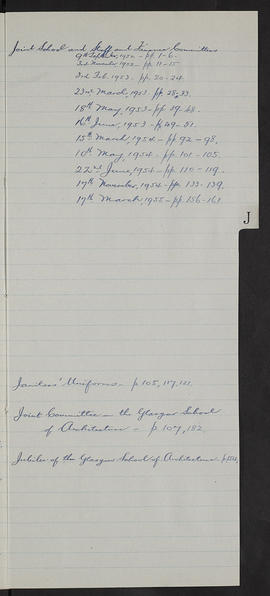 Joint School and Staff and Finance Committees
9th September, 1952 - pp. 1-6.
3rd November, 1952 - pp. 11-15.
3rd Feb. 1953 - pp. 20-24.
23rd March, 1953 - pp. 28-33.
18th May, 1953 - pp. 39-48.
16th June, 1953 - pp. 49-51.
15th March, 1954 - pp. 92-98.
10th May, 1954 - pp. 101-105.
22nd June, 1954 - pp. 110-119.
17th November, 1954 - pp. 133-139.
17th March, 1955 - pp. 156-161.
J
Janitors' Uniforms - p 105, 117, 121.
Joint Committee on the Glasgow School
of Architecture - p. 107, 182.
Jubilee of the Glasgow School of Architecture